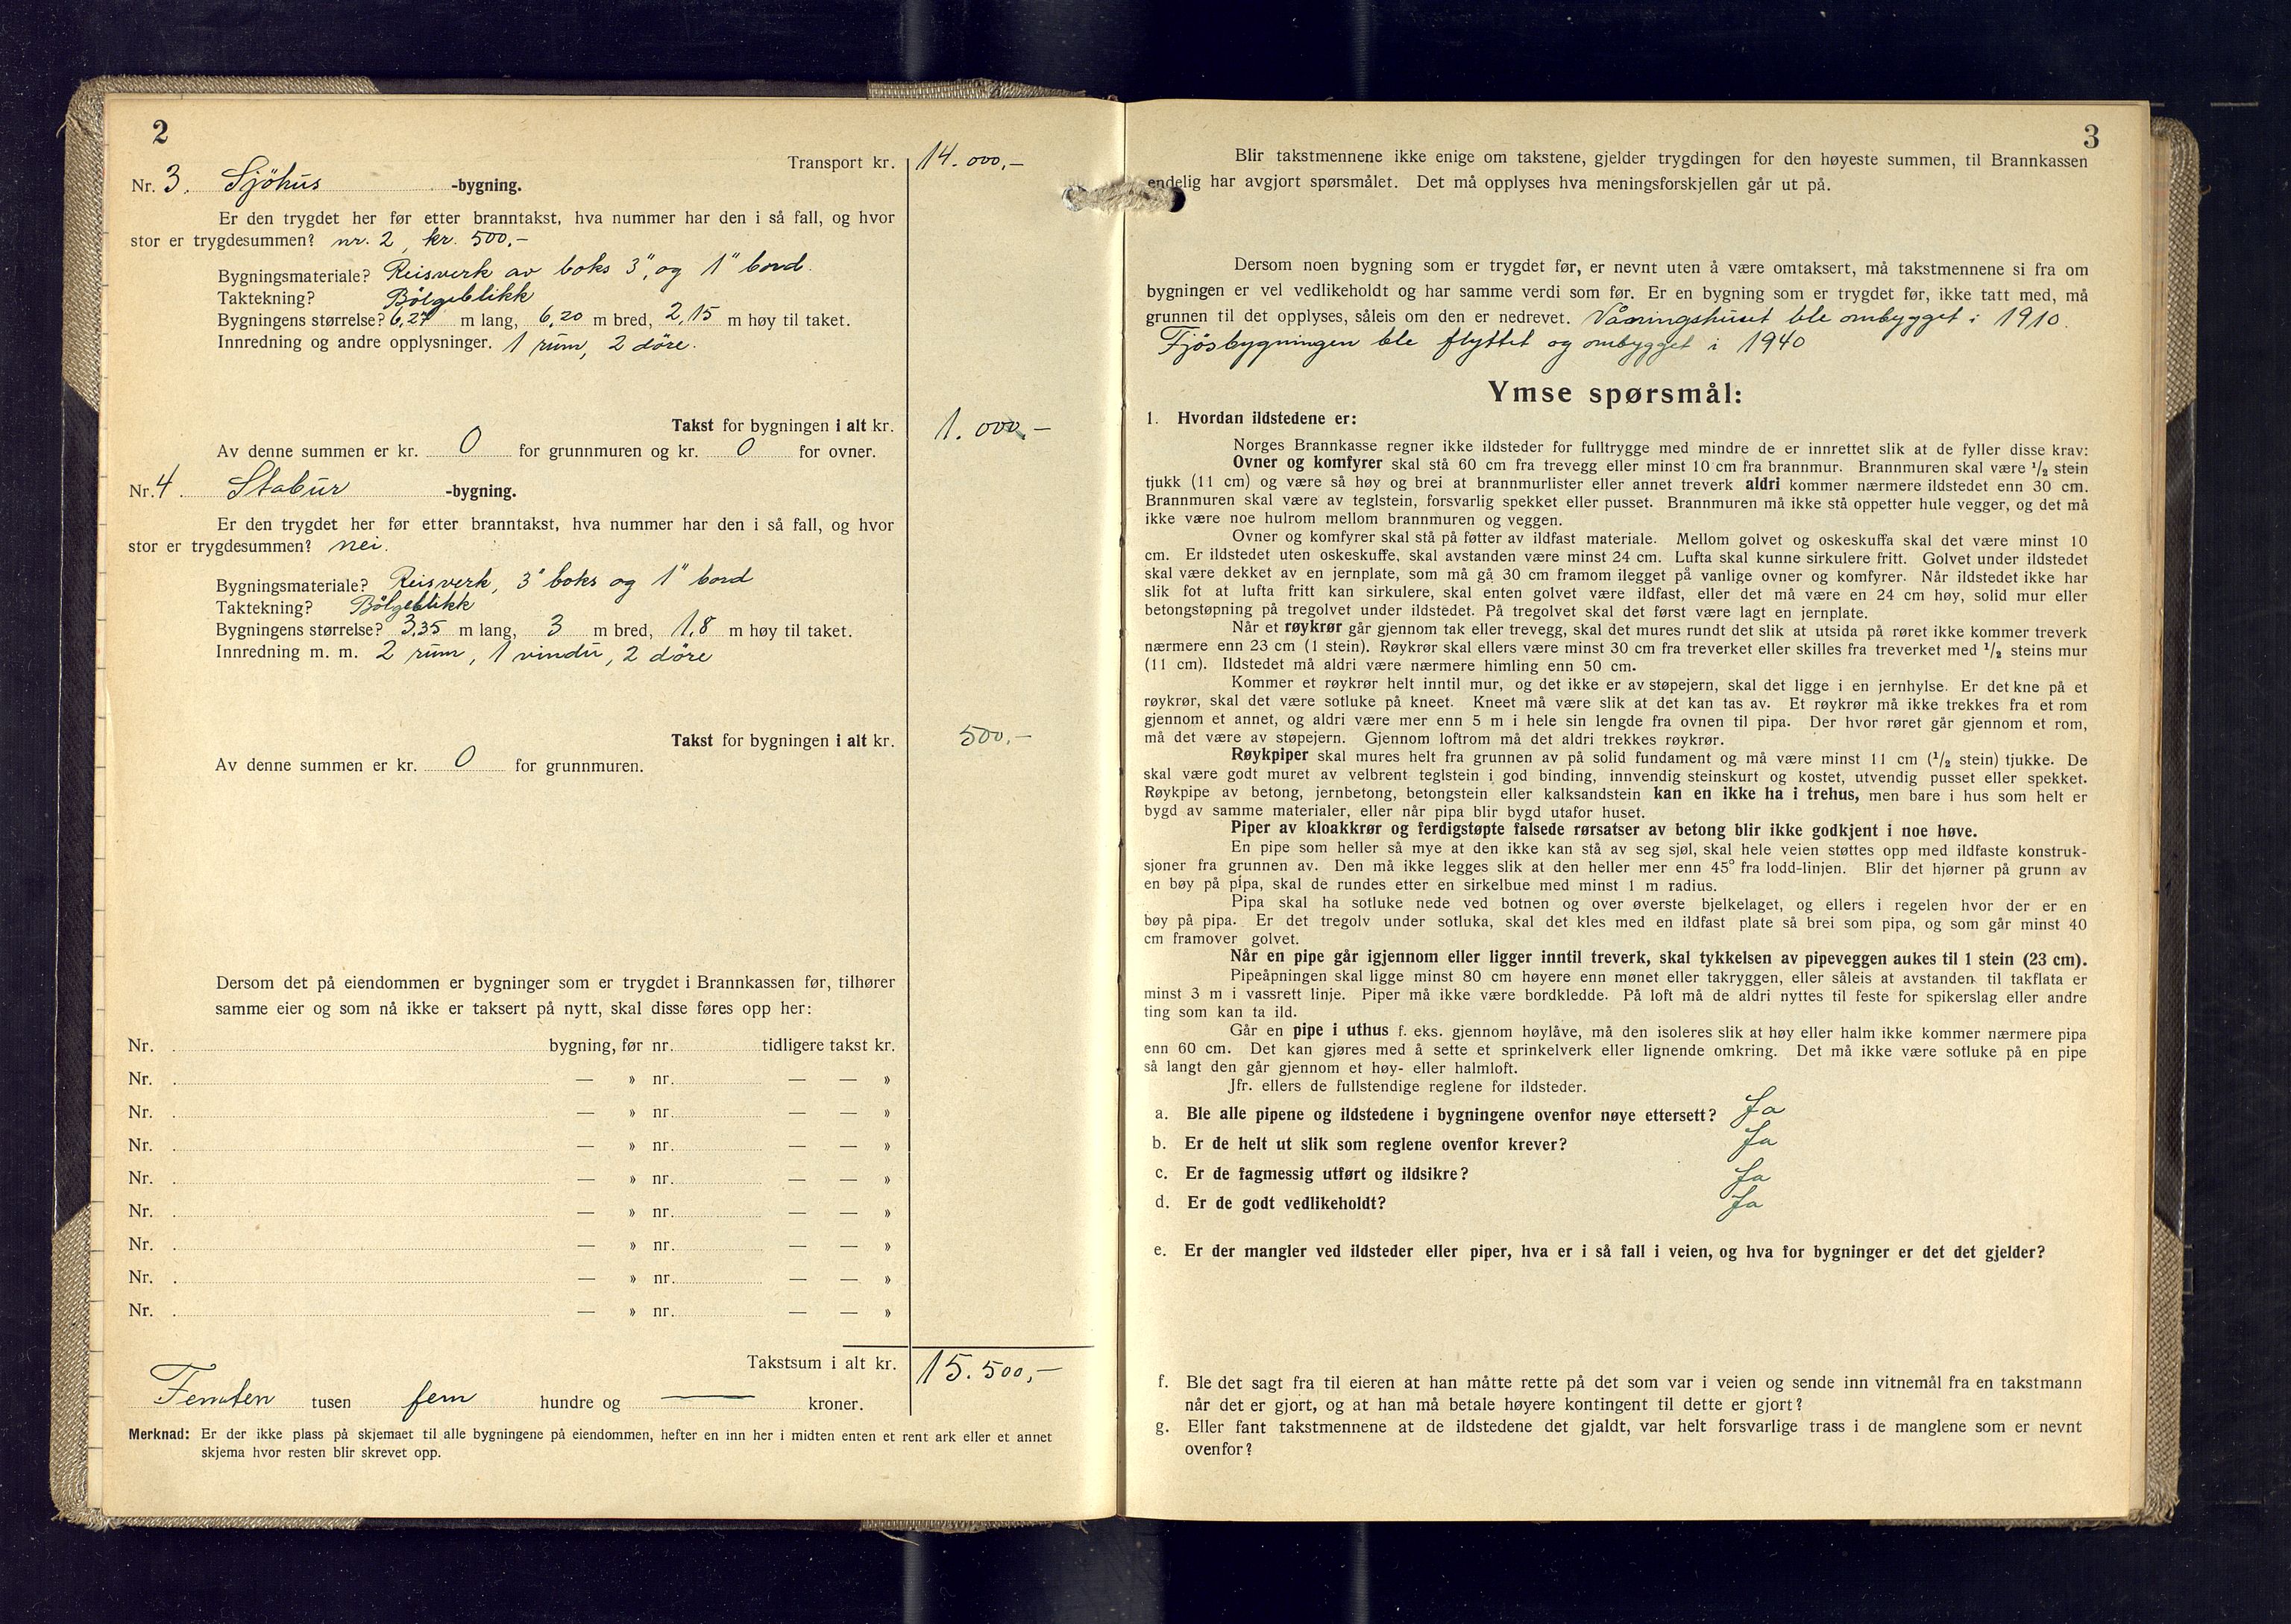 2
Transport kr. 14.000,-
Nr. 3. Sjöhus -bygning.
Er den trygdet her før etter branntakst, hva nummer har den i så fall, og hvor
stor er trygdesummen? nr. 2, kr. 500.-
Bygningsmateriale? Reisverk av boks 3", og 1" bord.
Taktekning? Bölgeblikk
Bygningens størrelse? 6,27 m lang, 6,20 m bred, 2,15 m høy til taket.
Innredning og andre opplysninger. 1 rum, 2 döre.
Takst for bygningen i alt kr. 1.000.-
Av denne summen er kr. 0 for grunnmuren og kr. 0 for ovner.
Nr. 4 Stabur -bygning.
Er den trygdet her før etter branntakst, hva nummer har den i så fall, og hvor
stor er trygdesummen? nei.
Bygningsmateriale? Reisverk, 3" boks og 1" bord
Taktekning? Bölgeblikk
Bygningens størrelse? 3,35 m lang, 3 m bred, 1,8 m høy til taket.
Innredning m. m. 2 rum, 1 vindu, 2 döre
Takst for bygningen i alt kr. 500.-
Av denne summen er kr. 0 for grunnmuren.
Dersom det på eiendommen er bygninger som er trygdet i Brannkassen før, tilhører
samme eier og som nå ikke er taksert på nytt, skal disse føres opp her:
Nr. bygning, før nr. tidligere takst kr.
Nr. — » nr. — — »
Nr. — » nr. — — »
Nr. — » nr. — — »
Nr. — » nr. — — »
Nr. — » nr. — — »
Nr. — » nr. — — »
Nr. — » nr. — — »
Nr. — » nr. — — »
Takstsum i alt kr. 15.500,-
Femten tusen fem hundre og — kroner.
Merknad: Er der ikke plass på skjemaet til alle bygningene på eiendommen, hefter en inn her i midten enten et rent ark eller et annet
skjema hvor resten blir skrevet opp.
3
Blir takstmennene ikke enige om takstene, gjelder trygdingen for den høyeste summen, til Brannkassen
endelig har avgjort spørsmålet. Det må opplyses hva meningsforskjellen går ut på.
Dersom noen bygning som er trygdet før, er nevnt uten å være omtaksert, må takstmennene si fra om
bygningen er vel vedlikeholdt og har samme verdi som før. Er en bygning som er trygdet før, ikke tatt med, må
grunnen til det opplyses, såleis om den er nedrevet. Våningshuset ble ombygget i 1910.
Fjösbygningen ble flyttet og ombygget i 1940
Ymse spørsmål:
1. Hvordan ildstedene er:
Norges Brannkasse regner ikke ildsteder for fulltrygge med mindre de er innrettet slik at de fyller disse krav:
Ovner og komfyrer skal stå 60 cm fra trevegg eller minst 10 cm fra brannmur. Brannmuren skal være ½ stein
tjukk (11 cm) og være så høy og brei at brannmurlister eller annet treverk aldri kommer nærmere ildstedet enn 30 cm.
Brannmuren skal være av teglstein, forsvarlig spekket eller pusset. Brannmuren må ikke stå oppetter hule vegger, og det må
ikke være noe hulrom mellom brannmuren og veggen.
Ovner og komfyrer skal stå på føtter av ildfast materiale. Mellom golvet og oskeskuffa skal det være minst 10
cm. Er ildstedet uten oskeskuffe, skal avstanden være minst 24 cm. Lufta skal kunne sirkulere fritt. Golvet under ildstedet
skal være dekket av en jernplate, som må gå 30 cm framom ilegget på vanlige ovner og komfyrer. Når ildstedet ikke har
slik fot at lufta fritt kan sirkulere, skal enten golvet være ildfast, eller det må være en 24 cm høy, solid mur eller
betongstøpning på tregolvet under ildstedet. På tregolvet skal det først være lagt en jernplate.
Når et røykrør går gjennom tak eller trevegg, skal det mures rundt det slik at utsida på røret ikke kommer treverk
nærmere enn 23 cm (1 stein). Røykrør skal ellers være minst 30 cm fra treverket eller skilles fra treverket med ½ steins mur
(11 cm). Ildstedet må aldri være nærmere himling enn 50 cm.
Kommer et røykrør helt inntil mur, og det ikke er av støpejern, skal det ligge i en jernhylse. Er det kne på et
røykrør, skal det være sotluke på kneet. Kneet må være slik at det kan tas av. Et røykrør må ikke trekkes fra et rom
gjennom et annet, og aldri være mer enn 5 m i hele sin lengde fra ovnen til pipa. Der hvor røret går gjennom et rom,
må det være av støpejern. Gjennom loftrom må det aldri trekkes røykrør.
Røykpiper skal mures helt fra grunnen av på solid fundament og må være minst 11 cm (½ stein) tjukke. De
skal være godt muret av velbrent teglstein i god binding, innvendig steinskurt og kostet, utvendig pusset eller spekket.
Røykpipe av betong, jernbetong, betongstein eller kalksandstein kan en ikke ha i trehus, men bare i hus som helt er
bygd av samme materialer, eller når pipa blir bygd utafor huset.
Piper av kloakkrør og ferdigstøpte falsede rørsatser av betong blir ikke godkjent i noe høve.
En pipe som heller så mye at den ikke kan stå av seg sjøl, skal hele veien støttes opp med ildfaste konstruk-
sjoner fra grunnen av. Den må ikke legges slik at den heller mer enn 45° fra lodd-linjen. Blir det hjørner på grunn av
en bøy på pipa, skal de rundes etter en sirkelbue med minst 1 m radius.
Pipa skal ha sotluke nede ved botnen og over øverste bjelkelaget, og ellers i regelen hvor der er en
bøy på pipa. Er det tregolv under sotluka, skal det kles med en ildfast plate så brei som pipa, og som går minst 40
cm framover golvet.
Når en pipe går igjennom eller ligger inntil treverk, skal tykkelsen av pipeveggen aukes til 1 stein (23 cm).
Pipeåpningen skal ligge minst 80 cm høyere enn mønet eller takryggen, eller såleis at avstanden til takflata er
minst 3 m i vassrett linje. Piper må ikke være bordkledde. På loft må de aldri nyttes til feste for spikerslag eller andre
ting som kan ta ild.
Går en pipe i uthus f. eks. gjennom høylåve, må den isoleres slik at høy eller halm ikke kommer nærmere pipa
enn 60 cm. Det kan gjøres med å sette et sprinkelverk eller lignende omkring. Det må ikke være sotluke på en pipe
så langt den går gjennom et høy- eller halmloft.
Jfr. ellers de fullstendige reglene for ildsteder.
a. Ble alle pipene og ildstedene i bygningene ovenfor nøye ettersett? Ja
b. Er de helt ut slik som reglene ovenfor krever? Ja
c. Er de fagmessig utført og ildsikre? Ja
d. Er de godt vedlikeholdt? Ja
e. Er der mangler ved ildsteder eller piper, hva er i så fall i veien, og hva for bygninger er det det gjelder?
f. Ble det sagt fra til eieren at han måtte rette på det som var i veien og sende inn vitnemål fra en takstmann
når det er gjort, og at han må betale høyere kontingent til dette er gjort?
g. Eller fant takstmennene at de ildstedene det gjaldt, var helt forsvarlige trass i de manglene som er nevnt
ovenfor?